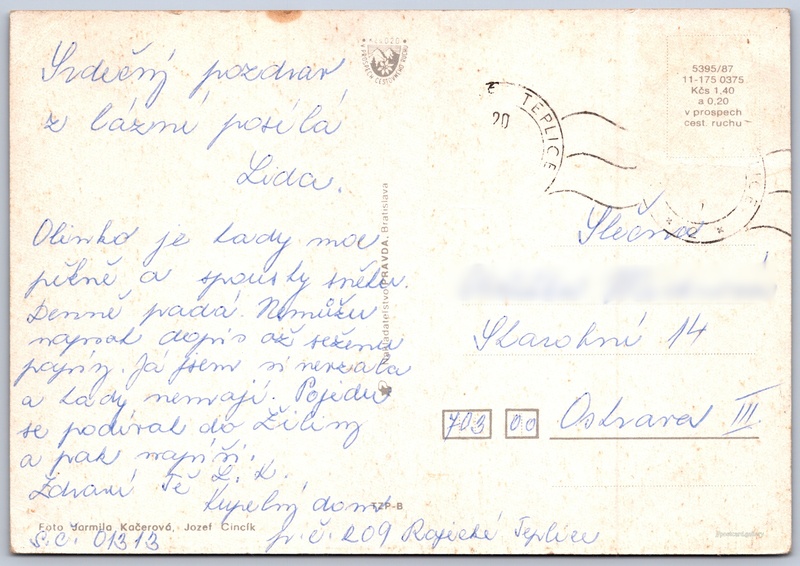 Srdečný pozdrav
z lázní posílá
Lida.
Olinko je tady moc
pěkně a spousty sněhu.
Denně padá. Nemůžu
napsat dopis až seženu
papír. Já jsem si nevzala
a tady nemají. Pojedu
se podívat do Žiliny
a pak napíši.
Zdraví Tě L. K.
Kupelný dom
p.č. 209 Rajecké Teplice
S.č. 01313
Foto Jarmila Kačerová, Jozef Cincík
TZP-B
Nakladatelstvo PRAVDA, Bratislava
TEPLICE
20
5395/87
11-175 0375
Kčs 1,40
a 0,20
v prospech
cest. ruchu
Slečna
Starobní 14
703 00 Ostrava III.